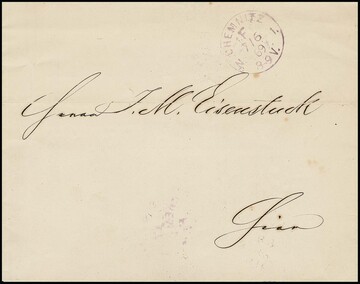 CHEMNITZ 1.
16
69
8-9 V.
Herrn J. M. Eisenstuck
Hier